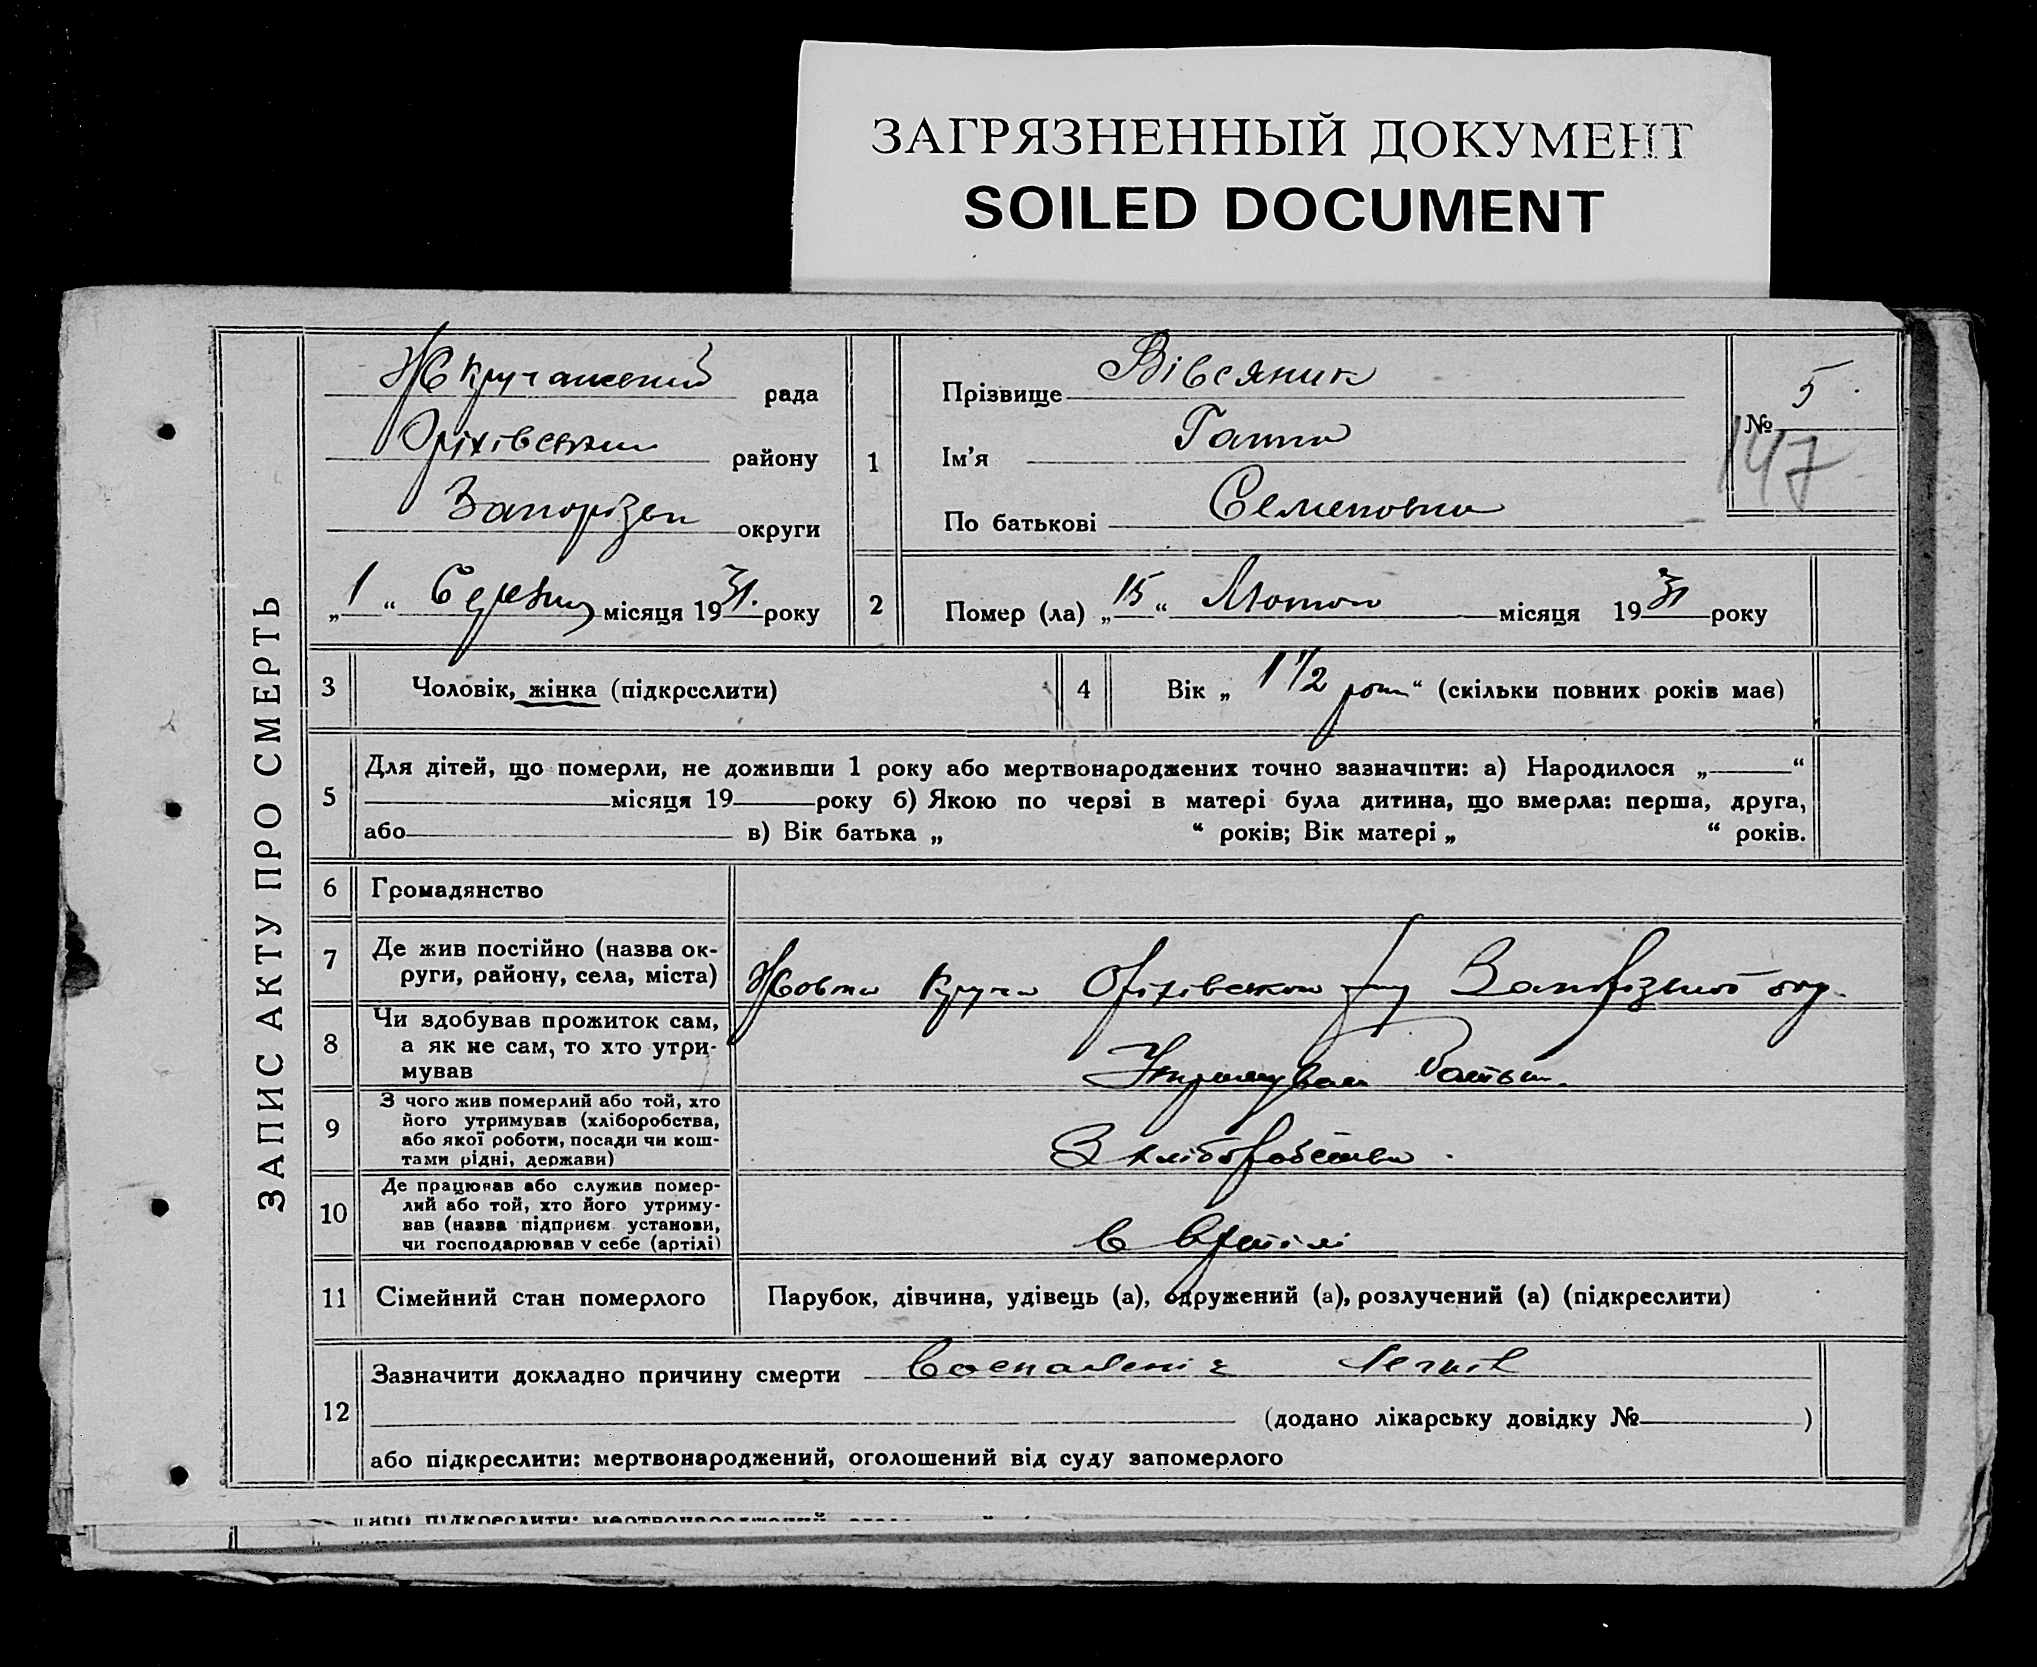 ЗАГРЯЗНЕННЫЙ ДОКУМЕНТ
SOILED DOCUMENT
ЗАПИС АКТУ ПРО СМЕРТЬ
рада
Оріхівськ району
Запорізьк округи
„ 1 “ Березня місяця 19 31. року
1
Прізвище Вівсяник
Ім'я Ганна
По батькові Семеновна
№ 5
147
2 Помер (ла) „ 15 “ Лютого місяця 19 31 року
3 Чоловік, жінка (підкреслити)
4 Вік „ 1 1/2 роки “ (скільки повних років має)
5 Для дітей, що померли, не доживши 1 року або мертвонароджених точно зазначити: а) Народилося „ “
місяця 19 року б) Якою по черзі в матері була дитина, що вмерла: перша, друга,
або в) Вік батька „ “ років; Вік матері „ “ років.
6 Громадянство
7 Де жив постійно (назва ок-
руги, району, села, міста)
Жовта Круча Оріхівського Запорізької окр.
8 Чи здобував прожиток сам,
а як не сам, то хто утри-
мував
Утримував батько.
9 З чого жив померлий або той, хто
його утримував (хліборобства,
або якої роботи, посади чи кош-
тами рідні, держави)
З хліборобства.
10 Де працював або служив помер-
лий або той, хто його утриму-
вав (назва підприєм. установи,
чи господарював у себе (артілі)
в артілі
11 Сімейний стан померлого
Парубок, дівчина, удівець (а), одружений (а), розлучений (а) (підкреслити)
12 Зазначити докладно причину смерти Воспаленіє легких
(додано лікарську довідку № )
або підкреслити: мертвонароджений, оголошений від суду запомерлого
або підкреслити: мертвонароджений,